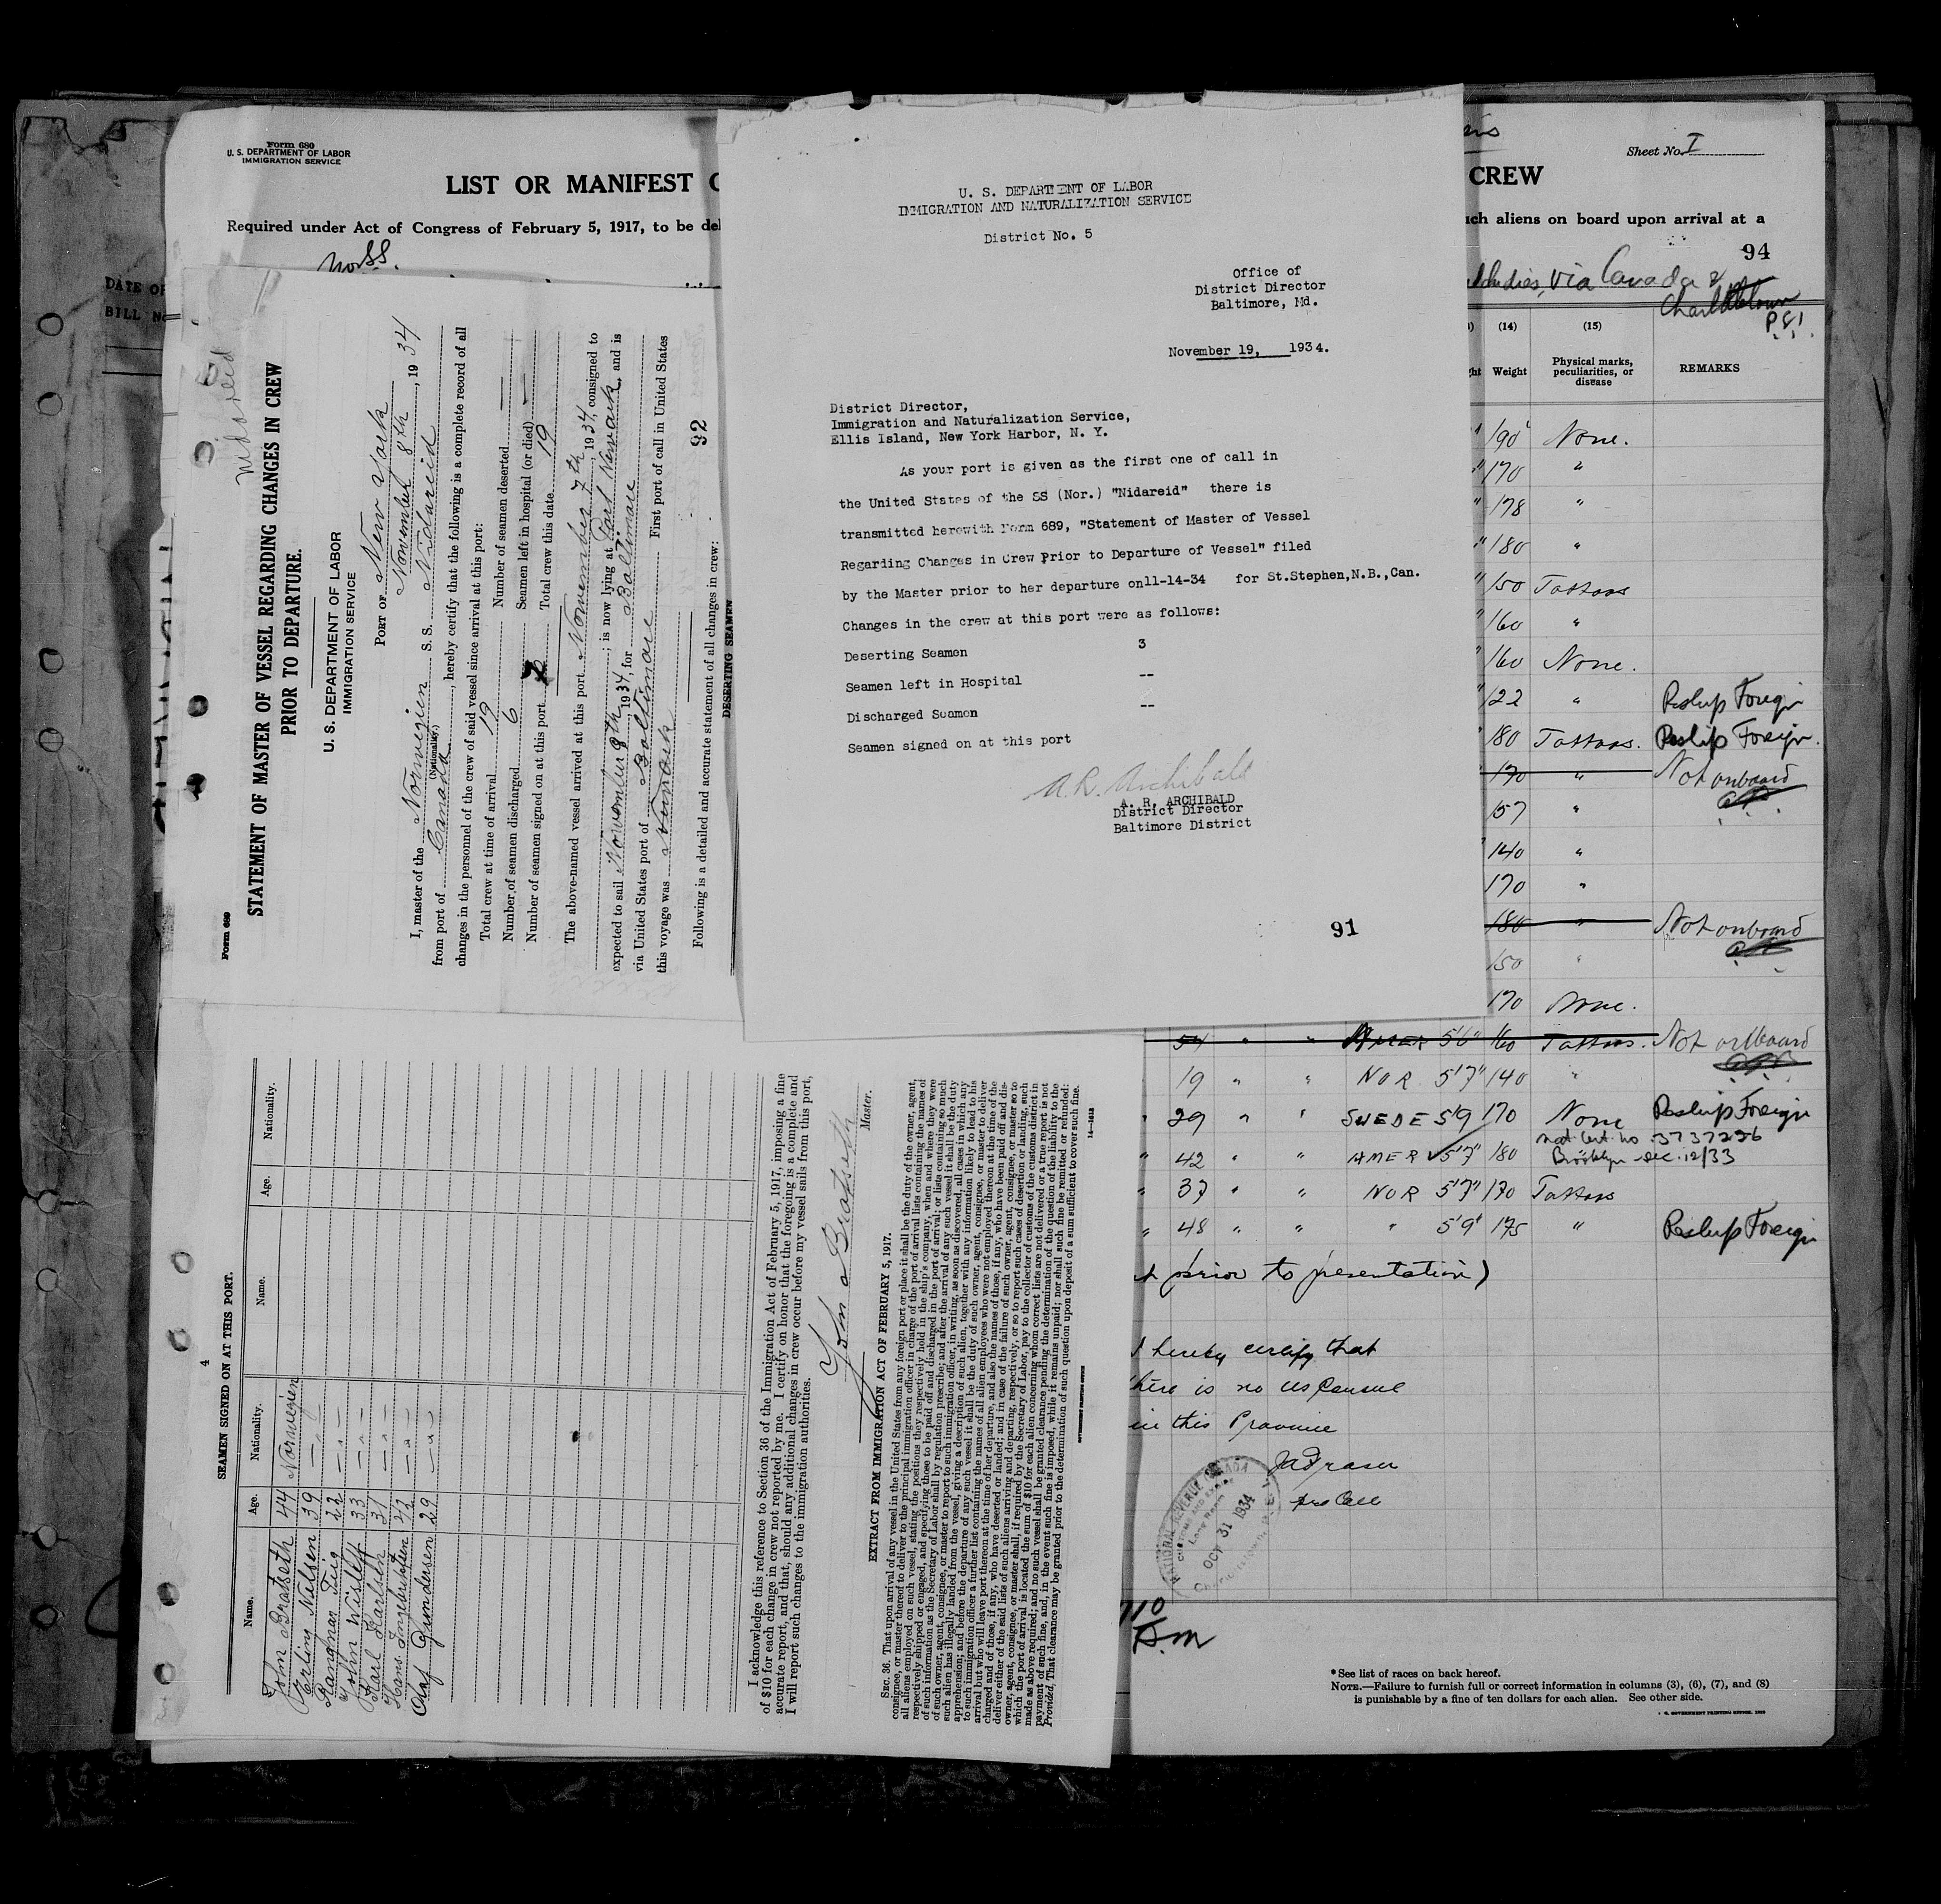 Form 680
U. S. DEPARTMENT OF LABOR
IMMIGRATION SERVICE
LIST OR MANIFEST
Required under Act of Congress of February 5, 1917, to be
Nor SS.
DATE OF
BILL
Form 689
Nidareid
STATEMENT OF MASTER OF VESSEL REGARDING CHANGES IN CREW
PRIOR TO DEPARTURE.
U. S. DEPARTMENT OF LABOR
IMMIGRATION SERVICE
PORT OF New York
November 8th, 1934
I, master of the Norwegien S. S. Nidareid
(Nationality)
from port of Canada, hereby certify that the following is a complete record of all
changes in the personnel of the crew of said vessel since arrival at this port:
Total crew at time of arrival 19 Number of seamen deserted —
Number of seamen discharged 6 Seamen left in hospital (or died) —
Number of seamen signed on at this port Total crew this date 19
The above-named vessel arrived at this port November 7th, 1934, consigned to
; is now lying at Port Newark, and is
expected to sail November 8th, 1934, for Baltimore
via United States port of Baltimore First port of call in United States
this voyage was Newark
Following is a detailed and accurate statement of all changes in crew:
92
DESERTING SEAMEN
U. S. DEPARTMENT OF LABOR
IMMIGRATION AND NATURALIZATION SERVICE
District No. 5
Office of
District Director
Baltimore, Md.
November 19, 1934.
District Director,
Immigration and Naturalization Service,
Ellis Island, New York Harbor, N. Y.
As your port is given as the first one of call in
the United States of the SS (Nor.) "Nidareid" there is
transmitted herewith Form 689, "Statement of Master of Vessel
Regarding Changes in Crew Prior to Departure of Vessel" filed
by the Master prior to her departure on11-14-34 for St.Stephen,N.B.,Can.
Changes in the crew at this port were as follows:
Deserting Seamen 3
Seamen left in Hospital --
Discharged Seamen --
Seamen signed on at this port
A. R. Archibald
A. R. ARCHIBALD
District Director
Baltimore District
91
Sheet No. I
CREW
such aliens on board upon arrival at a
94
Indies, via Canada &
Charlottetown
P.E.I.
(14) (15)
Weight Physical marks, peculiarities, or disease REMARKS
190 None.
170 "
178 "
180 "
150 Tattoos
160 "
160 None.
122 " Reship Foreign
180 Tattoos. Reship Foreign.
170 " Not onboard
157 "
140 "
170 "
180 " Not onboard
150 "
170 None.
54 " " AMER 5'6" 160 Tattoos. Not onboard
19 " " NOR 5'7" 140 "
29 " " SWEDE 5'9 170 None Reship Foreign
Nat. Cert. No 3737226
42 " " AMER 5'7" 180 Brooklyn Dec. 12/33
37 " " NOR 5'7" 170 Tattoos
48 " " " 5'9" 175 " Reship Foreign
prior to presentation)
I hereby certify that
there is no US Consul
in this Province
JA Fraser
NATIONAL REVENUE CANADA
OCT 31 1934
*See list of races on back hereof.
NOTE.—Failure to furnish full or correct information in columns (3), (6), (7), and (8)
is punishable by a fine of ten dollars for each alien. See other side.
4
SEAMEN SIGNED ON AT THIS PORT.
Name. Age. Nationality. Name. Age. Nationality.
John Bratseth 44 Norwegien
Erling Nilsen 39 — " —
Ragnar Tvig 22 — " —
John Wisleff 33 — " —
Karl Karlsen 31 — " —
Hans Ingebrigtsen 42 — " —
Olaf Gundersen 29 — " —
I acknowledge this reference to Section 36 of the Immigration Act of February 5, 1917, imposing a fine
of $10 for each change in crew not reported by me. I certify on honor that the foregoing is a complete and
accurate report, and that, should any additional changes in crew occur before my vessel sails from this port,
I will report such changes to the immigration authorities.
John a Bratseth
Master.
EXTRACT FROM IMMIGRATION ACT OF FEBRUARY 5, 1917.
SEC. 36. That upon arrival of any vessel in the United States from any foreign port or place it shall be the duty of the owner, agent,
consignee, or master thereof to deliver to the principal immigration officer in charge of the port of arrival lists containing the names of
all aliens employed on such vessel, stating the positions they respectively hold in the ship's company, when and where they were
respectively shipped or engaged, and specifying those to be paid off and discharged in the port of arrival; or lists containing so much
of such information as the Secretary of Labor shall by regulation prescribe; and after the arrival of any such vessel it shall be the duty
of such owner, agent, consignee, or master to report to such immigration officer, in writing, as soon as discovered, all cases in which any
such alien has illegally landed from the vessel, giving a description of such alien, together with any information likely to lead to his
apprehension; and before the departure of any such vessel it shall be the duty of such owner, agent, consignee, or master to deliver
to such immigration officer a further list containing the names of all alien employees who were not employed thereon at the time of the
arrival but who will leave port thereon at the time of her departure, and also the names of those, if any, who have been paid off and dis-
charged and of those, if any, who have deserted or landed; and in case of the failure of such owner, agent, consignee, or master so to
deliver either of the said lists of such aliens arriving and departing, respectively, or so to report such cases of desertion or landing, such
owner, agent, consignee, or master shall, if required by the Secretary of Labor, pay to the collector of customs of the customs district in
which the port of arrival is located the sum of $10 for each alien concerning whom correct lists are not delivered or a true report is not
made as above required; and no such vessel shall be granted clearance pending the determination of the question of the liability to the
payment of such fine, and, in the event such fine is imposed, while it remains unpaid; nor shall such fine be remitted or refunded:
Provided, That clearance may be granted prior to the determination of such question upon deposit of a sum sufficient to cover such fine.